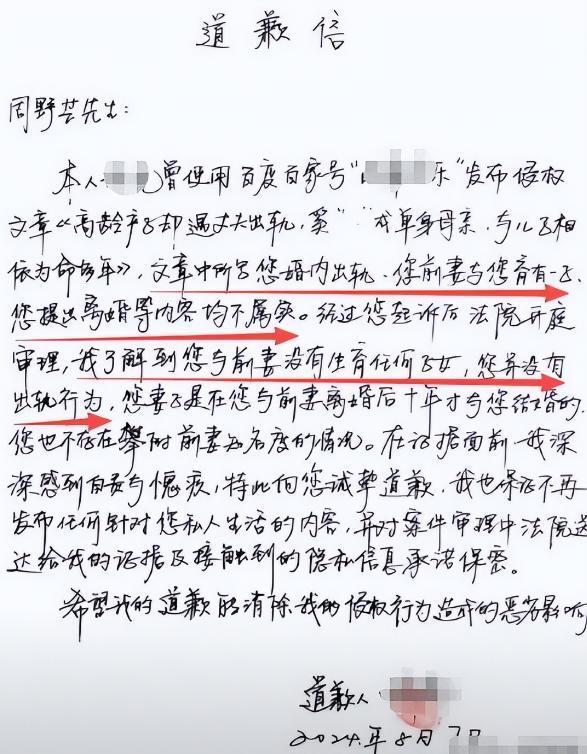 道歉信
周野芒先生：
本人曾使用百度百家号“乐”发布侵权
文章《高龄产子却遇丈夫出轨，奚“”成单身母亲，与儿子相
依为命多年》，文章中所写您婚内出轨、您前妻与您育有一子、
您提出离婚等内容均不属实。经过您起诉后法院开庭
审理，我了解到您与前妻没有生育任何子女，您并没有
出轨行为，您妻子是在您与前妻离婚后十年才与您结婚的，
您也不存在攀附前妻知名度的情况。在证据面前，我深
深感到自责与愧疚，特此向您诚挚道歉，我也保证不再
发布任何针对您私人生活的内容，并对案件审理中法院送
达给我的证据及接触到的隐私信息承诺保密。
希望我的道歉能消除我的侵权行为造成的恶劣影响
道歉人
2024年8月7日